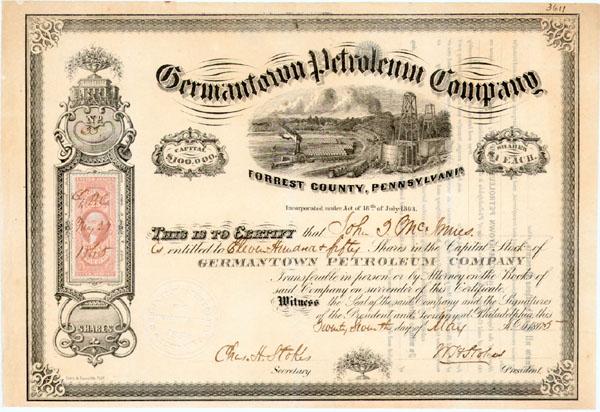 3611
Germantown Petroleum Company
No
35
CAPITAL
$100,000.
SHARES
$1 EACH.
FORREST COUNTY, PENNSYLVANIA
Incorporated, under Act of 18th of July 1863.
THIS IS TO CERTIFY that John I McInnes.
is entitled to Eleven Hundred & fifty Shares in the Capital Stock of
GERMANTOWN PETROLEUM COMPANY
Transferable in person or by Attorney on the Books of
said Company on surrender of this Certificate.
Witness the Seal of the said Company and the Signatures
of the President and Secretary at Philadelphia this
Twenty Seventh day of May A.D. 1865
SHARES
Chas. H. Stokes
Secretary
W H Stokes
President